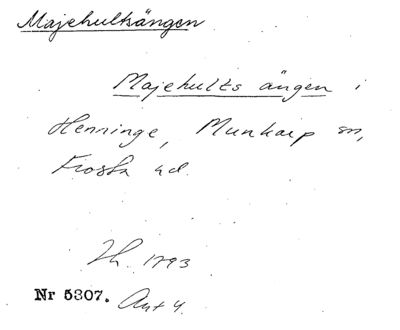 Majehultsängen
Majehults ängen i
Henninge, Munkarp sn,
Frosta hd.
1793
Nr 5307. Ant 4.